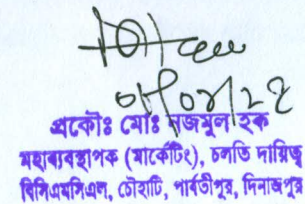 প্রকৌঃ মোঃ নজমুল হক
মহাব্যবস্থাপক (মার্কেটিং), চলতি দায়িত্ব
বিসিএমসিএল, চৌহাটি, পার্বতীপুর, দিনাজপুর